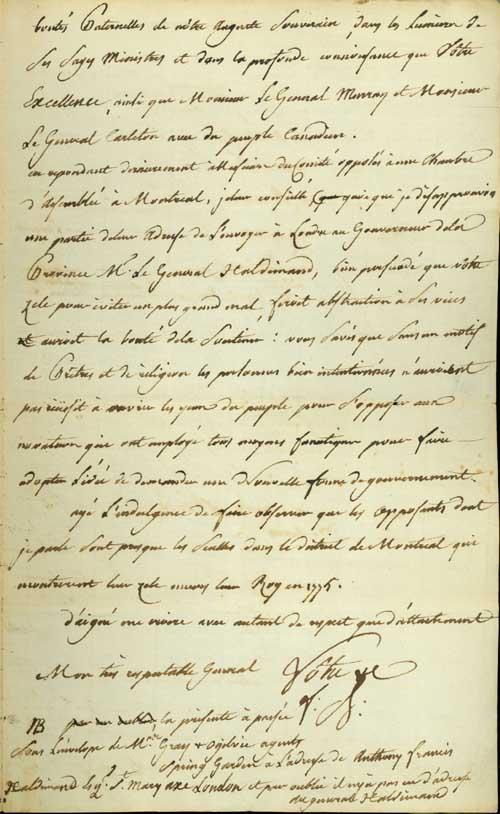 bontés Paternelles de nôtre Auguste Souverain, dans les Lumieres de
Ses Sages Ministres et dans la profonde connoissance que Vôtre
Excellence, ainsi que Monsieur Le General Murray et Monsieur
Le General Carleton avez du peuple Canadien.
en repondant dernierement à Messieurs du Comité opposés à une Chambre
d'assemblée à Montreal, je leur conseillé quoique je désapprouvois
une partie de leur adresse de L'envoyer à Londre au Gouverneur de la
Province Mr. Le General Haldimand, bien persuadé que vôtre
zele pour éviter un plus grand mal, feroit abstraction à Ses vices
et auroit la bonté de la Soutenir: vous savés que Sans un motif
de Prêtres et de religion les personnes bien intentionnées n'auroient
pas réüssit à ouvrir les yeux du peuple pour S'opposer aux
novateurs qui ont employé tous moyens fanatiques pour faire
adopter L'idée de demander une Nouvelle forme de gouvernement.
ayé L'indulgence de faire observer que les opposants dont
je parle Sont presque les Seulles dans le district de Montreal qui
montrerent leur zele envers leur Roy en 1775.
d'aigné me croire avec autant de respect que d'attachement
Mon très respectable General Vôtre &c
NB la présente à passée
Sous L'envelope de Mrs. Gray & Ogilvie agents
Spring Garden à L'adresse de Anthony Francis
Haldimand Esqr. St. Mary axe London et par oublie il n'y a pas eu d'adresse
au general Haldimand